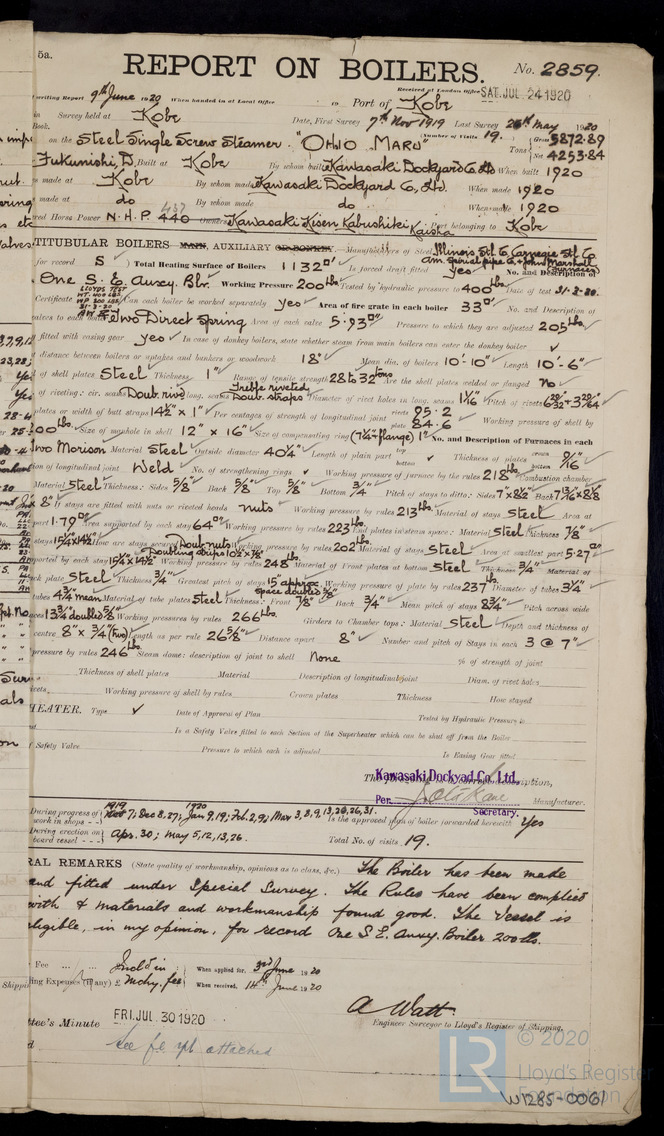 5a.
REPORT ON BOILERS.
No. 2859.
Received at London Office SAT. JUL 24 1920
writing Report 9th June 1920 When handed in at Local Office 10 Port of Kobe
in Survey held at Kobe Date, First Survey 7th Nov 1919 Last Survey 26th May 1920
Book. (Number of Visits 19.)
on the Steel Single Screw Steamer "OHIO MARU" Tons Gross 5872.89
Net 4253.84
Fukunishi, D. Built at Kobe By whom built Kawasaki Dockyard Co. Ltd When built 1920
made at Kobe By whom made Kawasaki Dockyard Co., Ltd. When made 1920
made at do By whom made do When made 1920
Horse Power N.H.P. 440 437 Owners Kawasaki Kisen Kabushiki Kaisha Port belonging to Kobe
TITUBULAR BOILERS MAIN, AUXILIARY OR DONKEY. Manufacturers of Steel Illinois St. Co Carnegie St. Co
for record S Total Heating Surface of Boilers 1132□' Is forced draft fitted Yes No. and Description of
One S. E. Auxy. Blr. Working Pressure 200 lbs Tested by hydraulic pressure to 400 lbs Date of test 31.3.20.
LLOYDS TEST
Certificate Can each boiler be worked separately yes Area of fire grate in each boiler 33□' No. and Description of
valves to each boiler Two Direct Spring Area of each valve 5.93□" Pressure to which they are adjusted 205 lbs.
fitted with easing gear yes In case of donkey boilers, state whether steam from main boilers can enter the donkey boiler ✓
distance between boilers or uptakes and bunkers or woodwork 18" Mean dia. of boilers 10'-10" Length 10'-6"
of shell plates Steel Thickness 1" Range of tensile strength 28 to 32 tons Are the shell plates welded or flanged No
of riveting: cir. seams Doub. riv. long. seams Treble riveted Doub. straps Diameter of rivet holes in long. seams 1 1/16" Pitch of rivets
plates or width of butt straps 14 1/2" x 1" Per centages of strength of longitudinal joint rivets 95.2
plate 84.6 Working pressure of shell by
Size of manhole in shell 12" x 16" Size of compensating ring (7 1/4" flange) 1" No. and Description of Furnaces in each
Two Morison Material Steel Outside diameter 40 1/4" Length of plain part top bottom ✓ Thickness of plates crown bottom 9/16"
of longitudinal joint Weld No. of strengthening rings ✓ Working pressure of furnace by the rules 218 lbs Combustion chamber
Material Steel Thickness: Sides 5/8" Back 5/8" Top 5/8" Bottom 3/4" Pitch of stays to ditto: Sides 7" x 8 1/2" Back
8" If stays are fitted with nuts or riveted heads nuts Working pressure by rules 213 lbs Material of stays Steel Area at
part 1.79□" Area supported by each stay 64□" Working pressure by rules 223 End plates in steam space: Material Steel Thickness 7/8"
stays 15 1/4" x 14 1/2" How are stays secured Doub. nuts Doubling strips 10 1/2" x 7/8" Working pressure by rules 202 lbs Material of stays Steel Area at smallest part 5.27□"
supported by each stay 15 1/4" x 14 1/2" Working pressure by rules 248 lbs Material of Front plates at bottom Steel Thickness 3/4" Material of
back plate Steel Thickness 3/4" Greatest pitch of stays 15" approx space doubled 5/8" Working pressure of plate by rules 237 lbs Diameter of tubes 3 1/4"
of tubes 4 3/4" mean Material of tube plates Steel Thickness: Front 7/8" Back 3/4" Mean pitch of stays 8 3/4" Pitch across wide
13 3/4" doubled 5/8" Working pressures by rules 266 lbs Girders to Chamber tops: Material Steel Depth and thickness of
centre 8" x 3/4" (two) Length as per rule 26 5/8" Distance apart 8" Number and pitch of Stays in each 3 @ 7"
pressure by rules 246 lbs Steam dome: description of joint to shell None % of strength of joint
Thickness of shell plates Material Description of longitudinal joint Diam. of rivet holes
rivets Working pressure of shell by rules Crown plates Thickness How stayed
HEATER. Type ✓ Date of Approval of Plan Tested by Hydraulic Pressure to
Is a Safety Valve fitted to each Section of the Superheater which can be shut off from the Boiler
Safety Valve Pressure to which each is adjusted Is Easing Gear fitted
The foregoing is a correct description,
Kawasaki Dockyad Co. Ltd.
Per. Manufacturer.
Secretary.
During progress of work in shops -- 1919 Nov 7; Dec 8, 27; 1920 Jan 9, 19; Feb. 2, 9; Mar 3, 8, 9, 13, 26, 26, 31. Is the approved plan of boiler forwarded herewith Yes
During erection on board vessel --- Apr. 30; May 5, 12, 13, 26. Total No. of visits 19.
RAL REMARKS (State quality of workmanship, opinions as to class, &c.) The Boiler has been made
and fitted under Special Survey. The Rules have been complied
with & materials and workmanship found good. The Vessel is
eligible, in my opinion, for record One S.E. Auxy. Boiler 200 lbs.
Fee ... ... Incl'd in When applied for, 3rd June 1920
ling Expenses (if any) £ Mchy. fee When received, 14th June 1920
A Watt.
Engineer Surveyor to Lloyd's Register of Shipping.
ttee's Minute FRI. JUL 30 1920
attached
LR © 2020
Lloyd's Register
Foundation
W1285-0061